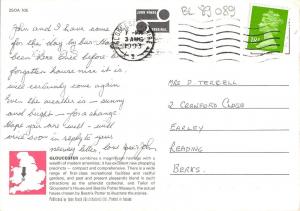 2SGA 106
John and I have come
for the day by bus. Have
been here once before but
forgotten how nice it is.
will certainly come again
Even the weather is - sunny
and bright - for a change!
Hope you are well - will
write soon in reply to your
newsy letter. love
GLOUCESTER combines a magnificent heritage with a
wealth of modern attractions; it has excellent new shopping
precincts - compact and comprehensive. There is a wide
range from traditional leisure facilities and verdant
gardens, and past and present pleasantly blend in such
attractions as the splendid cathedral, and Tailor of
Gloucester's House and Beatrix Potter Museum, the actual
house chosen by Beatrix Potter to illustrate the stories.
GLOUCESTER
3 AUG
1983
BL 83 089
MRS D TERRELL
2 CRAWFORD CLOSE
EARLEY
READING
BERKS.